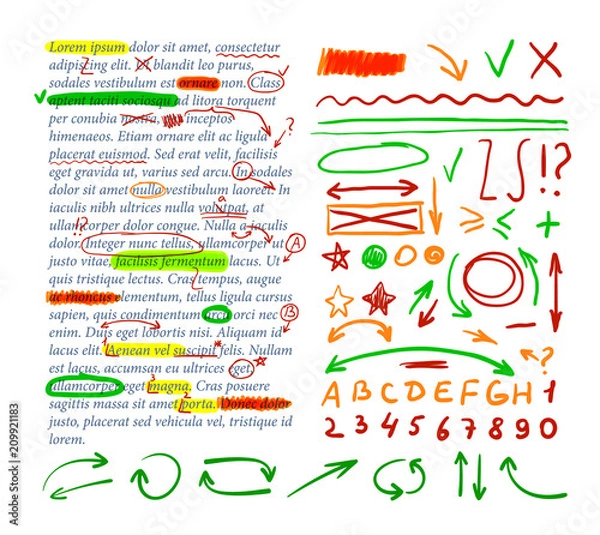 Lorem ipsum dolor sit amet, consectetur
adipiscing elit. In blandit leo purus,
sodales vestibulum est ornare non. Class
aptent taciti sociosqu ad litora torquent
per conubia nostra, inceptos
himenaeos. Etiam ornare elit ac ligula
placerat euismod. Sed erat velit, facilisis
eget gravida ut, varius sed arcu. In sodales
dolor sit amet nulla vestibulum laoreet. In
iaculis nibh ultrices nulla volutpat, at
ullamcorper dolor congue. Nulla a iaculis
dolor. Integer nunc tellus, ullamcorper ut
justo vitae, facilisis fermentum lacus. Ut
quis tristique lectus. Cras tempus, augue
ac rhoncus elementum, tellus ligula cursus
sapien, quis condimentum arcu orci nec
enim. Duis eget lobortis nisi. Aliquam id
lacus elit. Aenean vel suscipit felis. Nullam
est lacus, accumsan eu ultrices eget,
ullamcorper eget magna. Cras posuere
sagittis massa sit amet porta. Donec dolor
justo, placerat sed vehicula vel, tristique id
lorem.
?
a
!?
A
B
1
3
2
!?
?
A B C D E F G H 1
2 3 4 5 6 7 8 9 0
Adobe Stock | #209921183